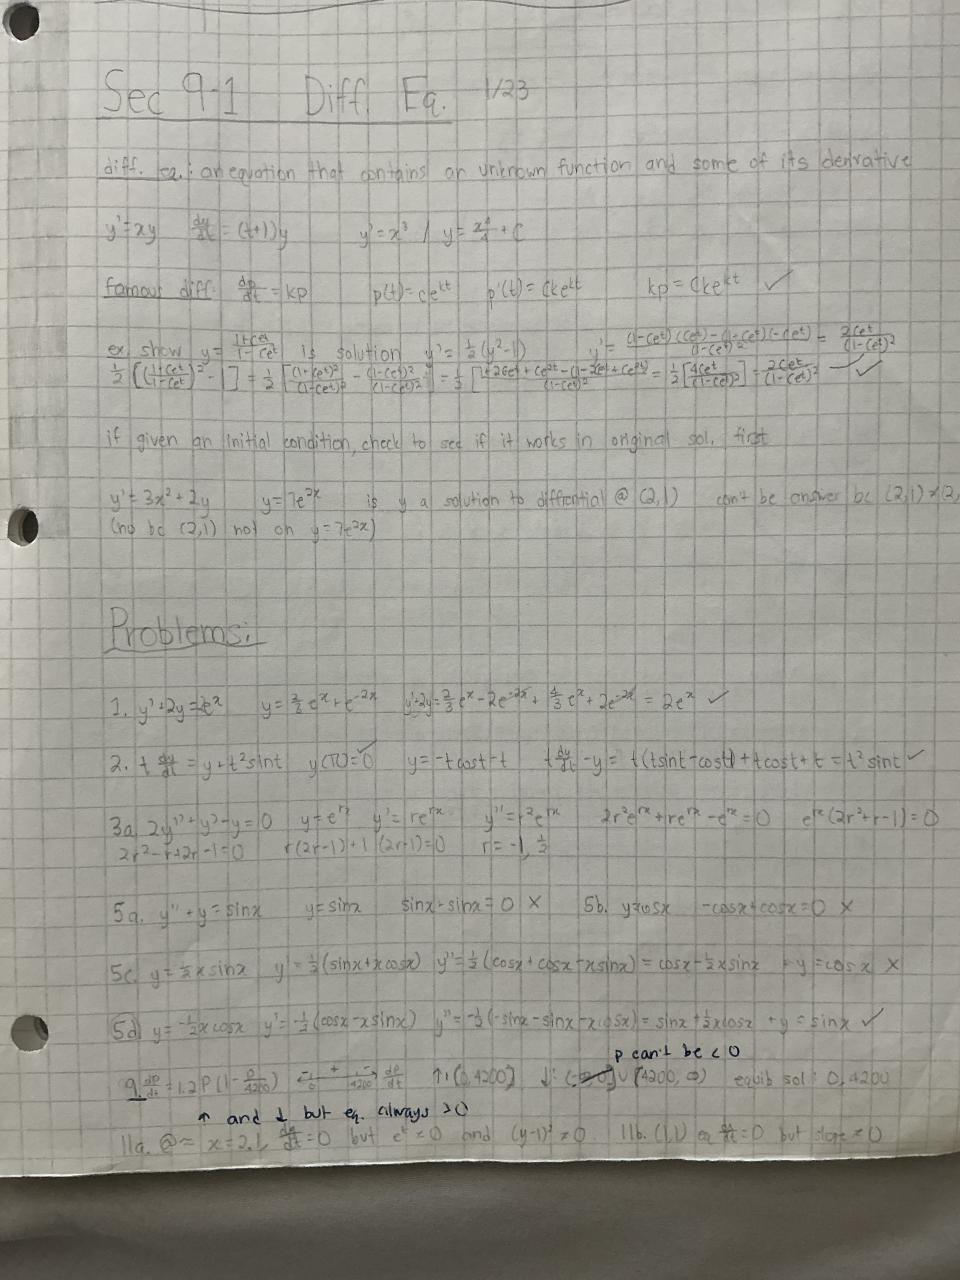 Sec 9-1 Diff. Eq. 1/23
diff. eq.: an equation that contains an unknown function and some of its derivative
y'=xy dy/dt = (t+1)y y'=x³ / y= x⁴/4 + C
famous diff: dp/dt = kp p(t)=ce^kt p'(t)=Cke^kt kp = Cke^kt ✓
ex. show y= (1+ce^t)/(1-ce^t) is solution y'= ½(y²-1) y'= ((1-ce^t)(ce^t)-(1-ce^t)(-ce^t))/(1-ce^t)² = 2ce^t/(1-ce^t)²
½[((1+ce^t)/(1-ce^t))² - 1] = ½[(1+ce^t)²/(1-ce^t)² - (1-ce^t)²/(1-ce^t)²] = ½[ /(1-ce^t)²] = ½[4ce^t/(1-ce^t)²] = 2ce^t/(1-ce^t)² ✓
if given an initial condition, check to see if it works in original sol. first
y'= 3x²+2y y=7e^2x is y a solution to diffrential @ (2,1) can't be answer bc (2,1)≠(2,
(no bc (2,1) not on y=7e^2x)
Problems:
1. y'+2y=2e^x y= ⅔e^x+e^-2x y'+2y=⅔e^x-2e^-2x+4/3e^x+2e^-2x = 2e^x ✓
2. t dy/dt = y+t²sint y(π)=0 ✓ y=-tcost-t t dy/dt -y= t(tsint-cost-1)+tcost+t = t²sint ✓
3a. 2y''+y'-y=0 y=e^rx y'=re^rx y''=r²e^rx 2r²e^rx+re^rx-e^rx=0 e^rx(2r²+r-1)=0
2r²-r+2r-1=0 r(2r-1)+1(2r-1)=0 r=-1,½
5a. y''+y=sinx y=sinx sinx-sinx=0 X 5b. y=cosx -cosx+cosx=0 X
5c. y=½xsinx y'=½(sinx+xcosx) y''=½(cosx+cosx-xsinx)=cosx-½xsinx +y=cosx X
5d. y=-½xcosx y'=-½(cosx-xsinx) y''=-½(-sinx-sinx-xcosx)=sinx+½xcosx +y=sinx ✓
p can't be <0
9. dp/dt=1.2P(1-P/4200) - + - 0 4200 dp/dt ↑:(0,4200) ↓: ∪(4200,∞) equib sol: 0,4200
↑ and ↓ but eq. always >0
11a. @≈ x=2.1, dy/dt=0 but e^t≠0 and (y-1)²≠0 11b. (1,1) eq dy/dt=0 but slope≠0